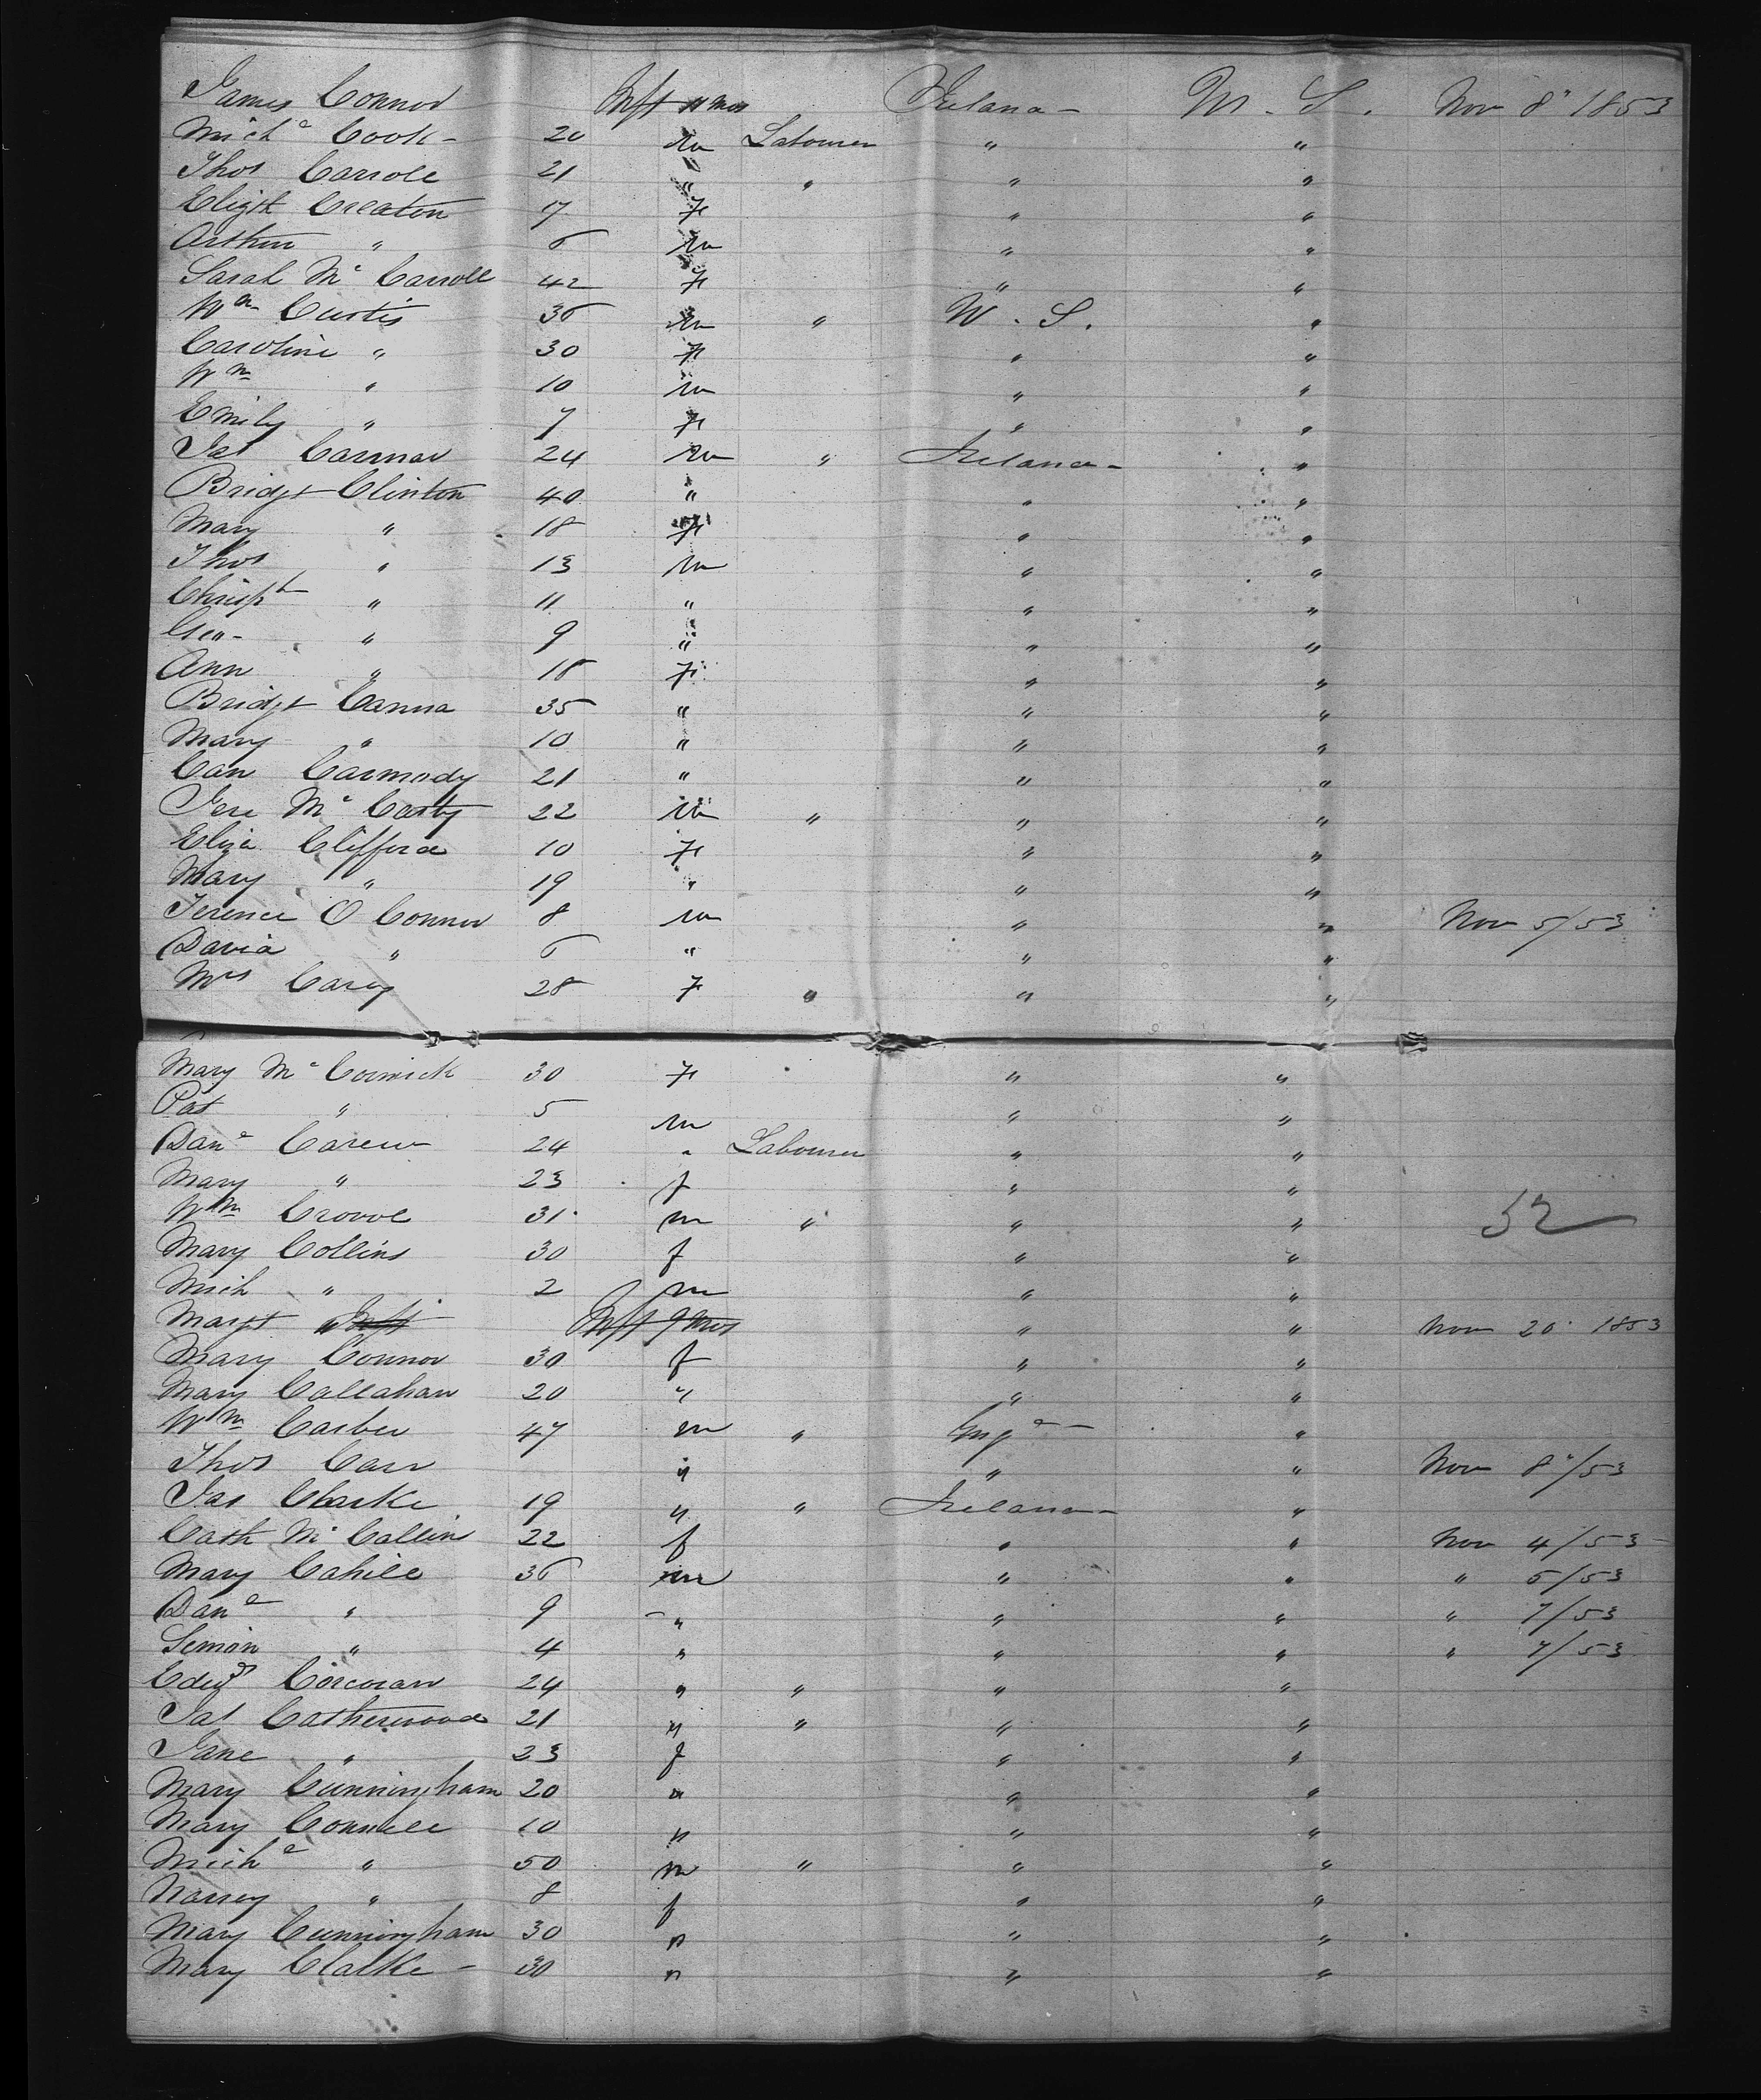 James Connor Inft 11 mos Ireland - U. S. Nov 8" 1853
Michl Cook - 20 m Labourer " "
Thos Carroll 21 " " " "
Elizth Creaton 7 F " "
Arthur " 6 m " "
Sarah Mc Carroll 42 F " "
Wm Curtis 36 m " U. S. "
Caroline " 30 F " "
Wm " 10 m " "
Emily " 7 F " "
Jas Connor 24 m " Ireland - "
Bridgt Clinton 40 " " "
Mary " 18 F " "
Thos " 13 m " "
Christr " 11 " " "
Geo - " 9 " " "
Ann " 18 F " "
Bridgt Canna 35 " " "
Mary " 10 " " "
Cath Carmody 21 " " "
Jere Mc Carty 22 m " " "
Eliza Clifford 10 F " "
Mary " 19 " " "
Terence O Connor 8 m " " Nov 5/53
David " 6 " " "
Mrs Carey 28 F " " "
Mary Mc Cormick 30 F " "
Pat " 5 m " "
Danl Carew 24 " Labourer " "
Mary " 23 f " "
Wm Crowe 31 m " " " 52
Mary Collins 30 f " "
Mich " 2 m " "
Margt " Inft Inft 9 mos " " Nov 20 1853
Mary Connor 30 f " "
Mary Callahan 20 " " "
Wm Carber 47 m " Engd - "
Thos Carr " " " Nov 8"/53
Jas Clarke 19 " " Ireland - "
Cath Mc Callin 22 f " " Nov 4/53
Mary Cahill 36 m " " " 5/53
Danl " 9 " " " " 7/53
Simon " 4 " " " " 7/53
Edwd Corcoran 24 " " " "
Jas Catherwood 21 " " " "
Jane " 23 f " "
Mary Cunningham 20 " " "
Mary Connell 10 " " "
Michl " 50 m " " "
Nancy " 8 f " "
Mary Cunningham 30 " " "
Mary Clarke - 30 " " "